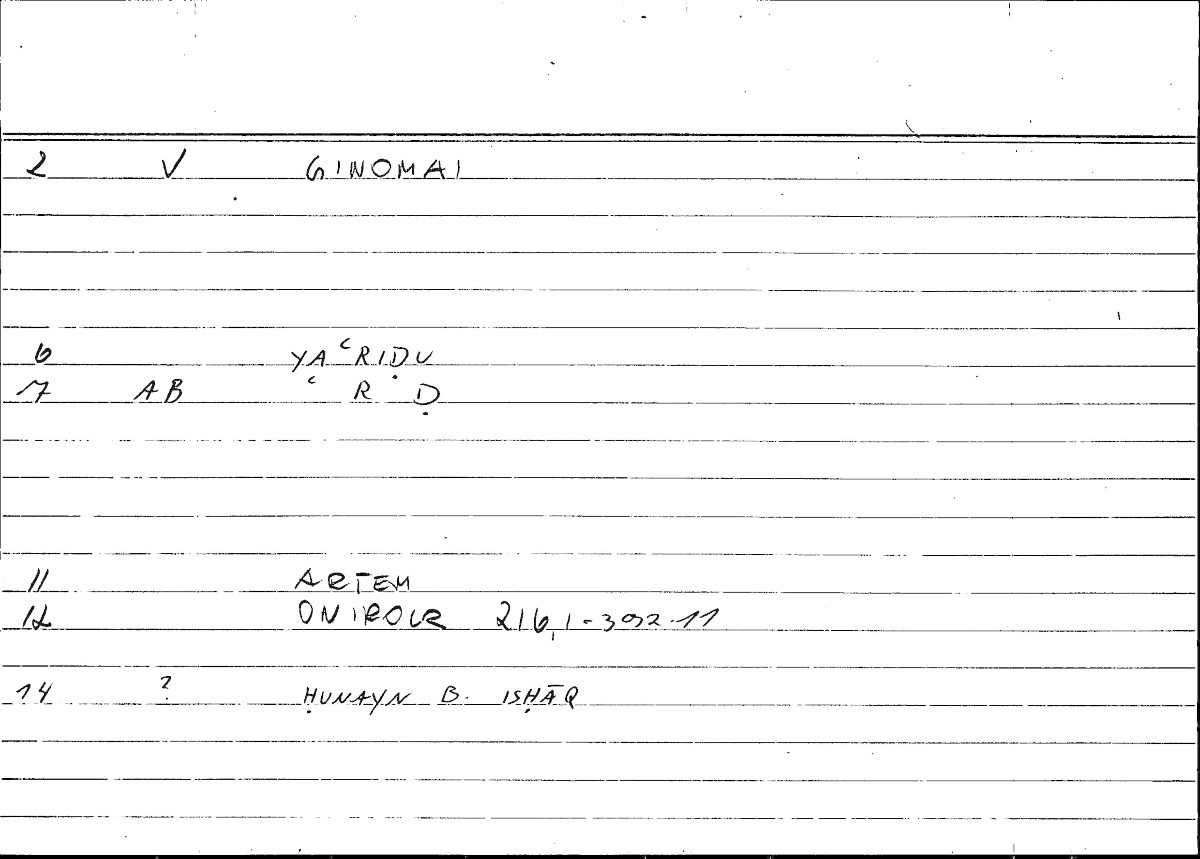 2 V GINOMAI
6 YAʿRIḌU
7 AB ʿ R Ḍ
11 ARTEM
12 ONIROCR 216,1-392.11
14 ? ḤUNAYN B. ISḤĀQ